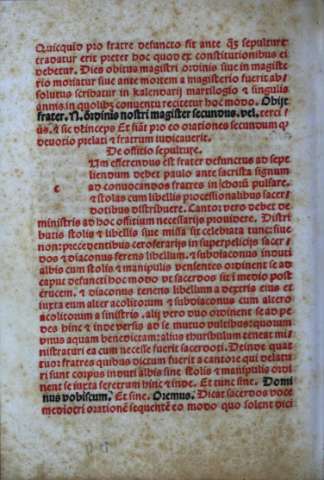 Quicquid pro fratre defuncto fit ante q̃ȝ sepulture
tradatur erit preter hoc quod ex constitutionibus ei
debetur. Dies obitus magistri ordinis siue in magiste
rio moriatur siue ante mortem a magisterio fuerit ab⸗
solutus scribatur in kalendarij martilogio ⁊ singulis
annis in quolibȝ conuentu recitetur hoc modo. Obijt
frater. N. ordinis nostri magister secundus. vel. terci⸗
us. ⁊ sic deinceps Et fiũt pro eo orationes secundum q̃
deuotio prelati ⁊ fratrum iudicauerit.
De officio sepulture.
Um efferendus est frater defunctus ad sepe
liendum debet paulo ante sacrista signum
ad conuocandos fratres in chorũ pulsare.
⁊ stolas cum libellis processionalibus sacer⸗
dotibus distribuere. Cantor vero debet de
ministris ad hoc offitium necessarijs prouidere. Distri
butis stolis ⁊ libellis siue missa sit celebrata tunc siue
non: precedentibus ceroferarijs in superpelicijs sacer⸗
dos ⁊ diaconus ferens libellum. ⁊ subdiaconus induti
albis cum stolis ⁊ manipulis venientes ordinent se ad
caput defuncti hoc modo vt sacerdos sit ĩ medio post
crucem. ⁊ diaconus tenens libellum a dextris eius et
iuxta eum alter acolitorum ⁊ subdiaconus cum altero
acolitorum a sinistris. alij vero duo ordinent se ad pe⸗
des hinc ⁊ inde versus ad se mutuo vultibus: quorum
vnus aquam benedictam: alius thuribulum teneat mi
nistraturi ea cum necesse fuerit sacerdoti. Deinde quat
tuor fratres quibus dictum fuerit a cantore qui delatu
ri sunt corpus induti albis sine stolis ⁊ manipulis ordi
nent se iuxta feretrum hinc ⁊ inde. Et tunc sine. Domi
nus vobiscum. Et sine. Oremus. Dicat sacerdos voce
mediocri orationẽ sequentẽ eo modo quo solent dici